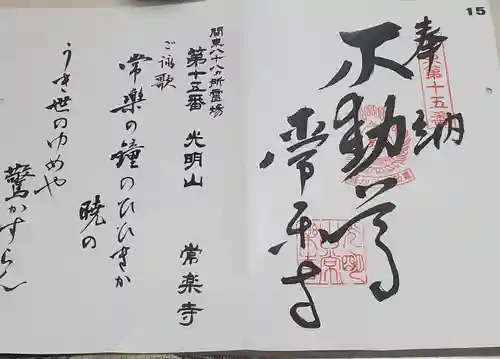 15
奉納
不動尊
常楽寺
関東八十八ヵ所霊場
第十五番 光明山 常楽寺
ご詠歌
常樂の鐘のひゞきか
暁の
うき世のゆめや
驚かすらん